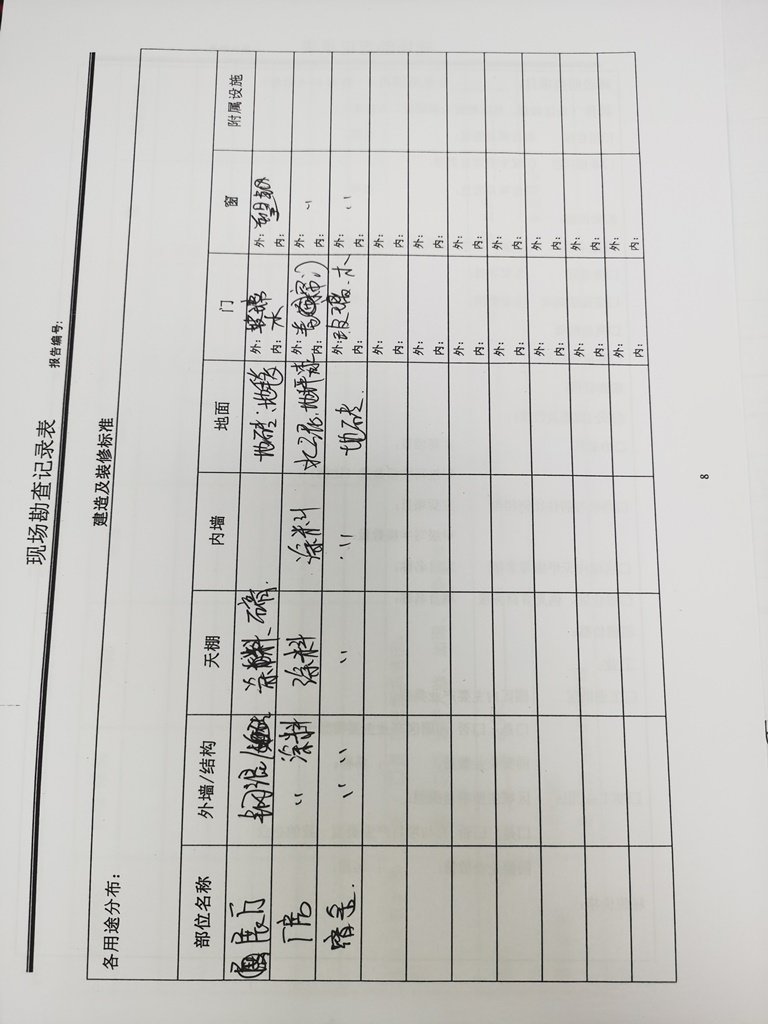 现场勘查记录表
报告编号:
建造及装修标准
各用途分布:
部位名称 外墙/结构 天棚 内墙 地面 门 窗 附属设施
展厅 钢混 涂料、 地砖、地毯 外: 玻璃 内: 木 外: 塑钢 内:
〃 涂料 涂料 涂料 水泥、地坪漆 外: 内: 外: 〃 内:
〃 〃 〃 〃 地砖. 外: 玻璃、木 内: 外: 〃 内:
外: 内: 外: 内:
外: 内: 外: 内:
外: 内: 外: 内:
外: 内: 外: 内:
外: 内: 外: 内:
外: 内: 外: 内:
外: 内: 外: 内:
8